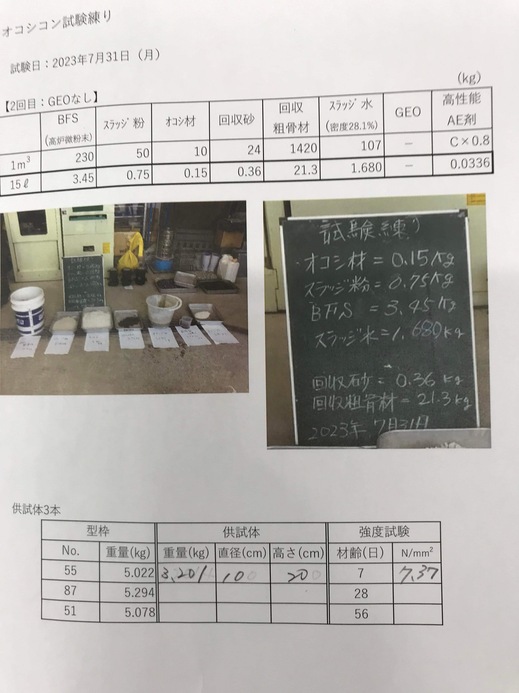 オコシコン試験練り
試験日：2023年7月31日（月）
(kg)
【2回目：GEOなし】
BFS (高炉微粉末) ｽﾗｯｼﾞ粉 オコシ材 回収砂 回収粗骨材 ｽﾗｯｼﾞ水 (密度28.1%) GEO 高性能AE剤
1m³ 230 50 10 24 1420 107 － C×0.8
15ℓ 3.45 0.75 0.15 0.36 21.3 1.680 － 0.0336
試験練り
・オコシ材=0.15Kg
スラッジ粉=0.75Kg
BFS=3.45Kg
スラッジ水=1.680kg
回収砂=0.36kg
回収粗骨材=21.3kg
2023年7月31日
供試体3本
型枠 供試体 強度試験
No. 重量(kg) 重量(kg) 直径(cm) 高さ(cm) 材齢(日) N/mm²
55 5.022 3.201 10 20 7 7.37
87 5.294 28
51 5.078 56